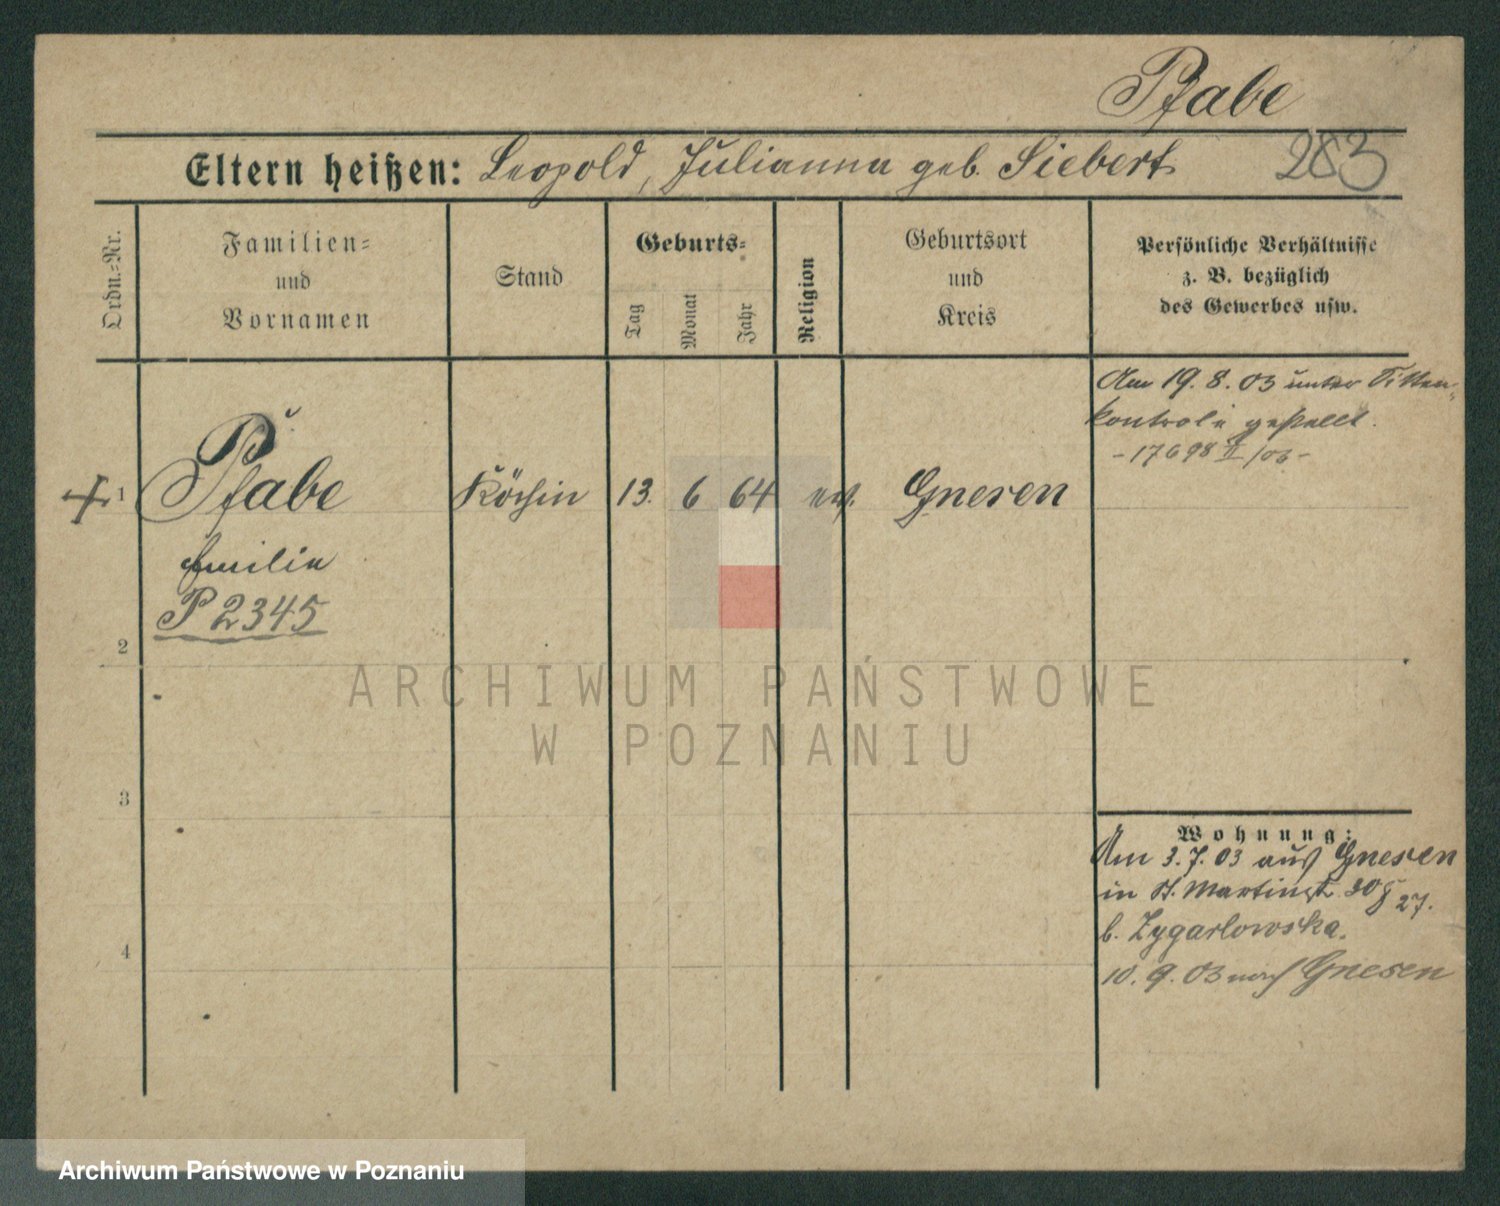 Pfabe
283
Eltern heißen: Leopold, Julianna geb. Siebert
Ordn.=Nr.
Familien=
und
Vornamen
Stand
Geburts=
Tag
Monat
Jahr
Religion
Geburtsort
und
Kreis
Persönliche Verhältnisse
z. B. bezüglich
des Gewerbes usw.
Am 19. 8. 03 unter Sitten-
kontrole gestellt.
- 17698 II/03 -
1 Pfabe Köchin 13. 6 64 ev. Gnesen
Emilie
P 2345
2
ARCHIWUM PAŃSTWOWE
W POZNANIU
3
Wohnung:
Am 3. 7. 03 aus Gnesen
in St. Martinstr. 30 27.
b. Zygarlowska.
4
10. 9. 03 nach Gnesen
Archiwum Państwowe w Poznaniu